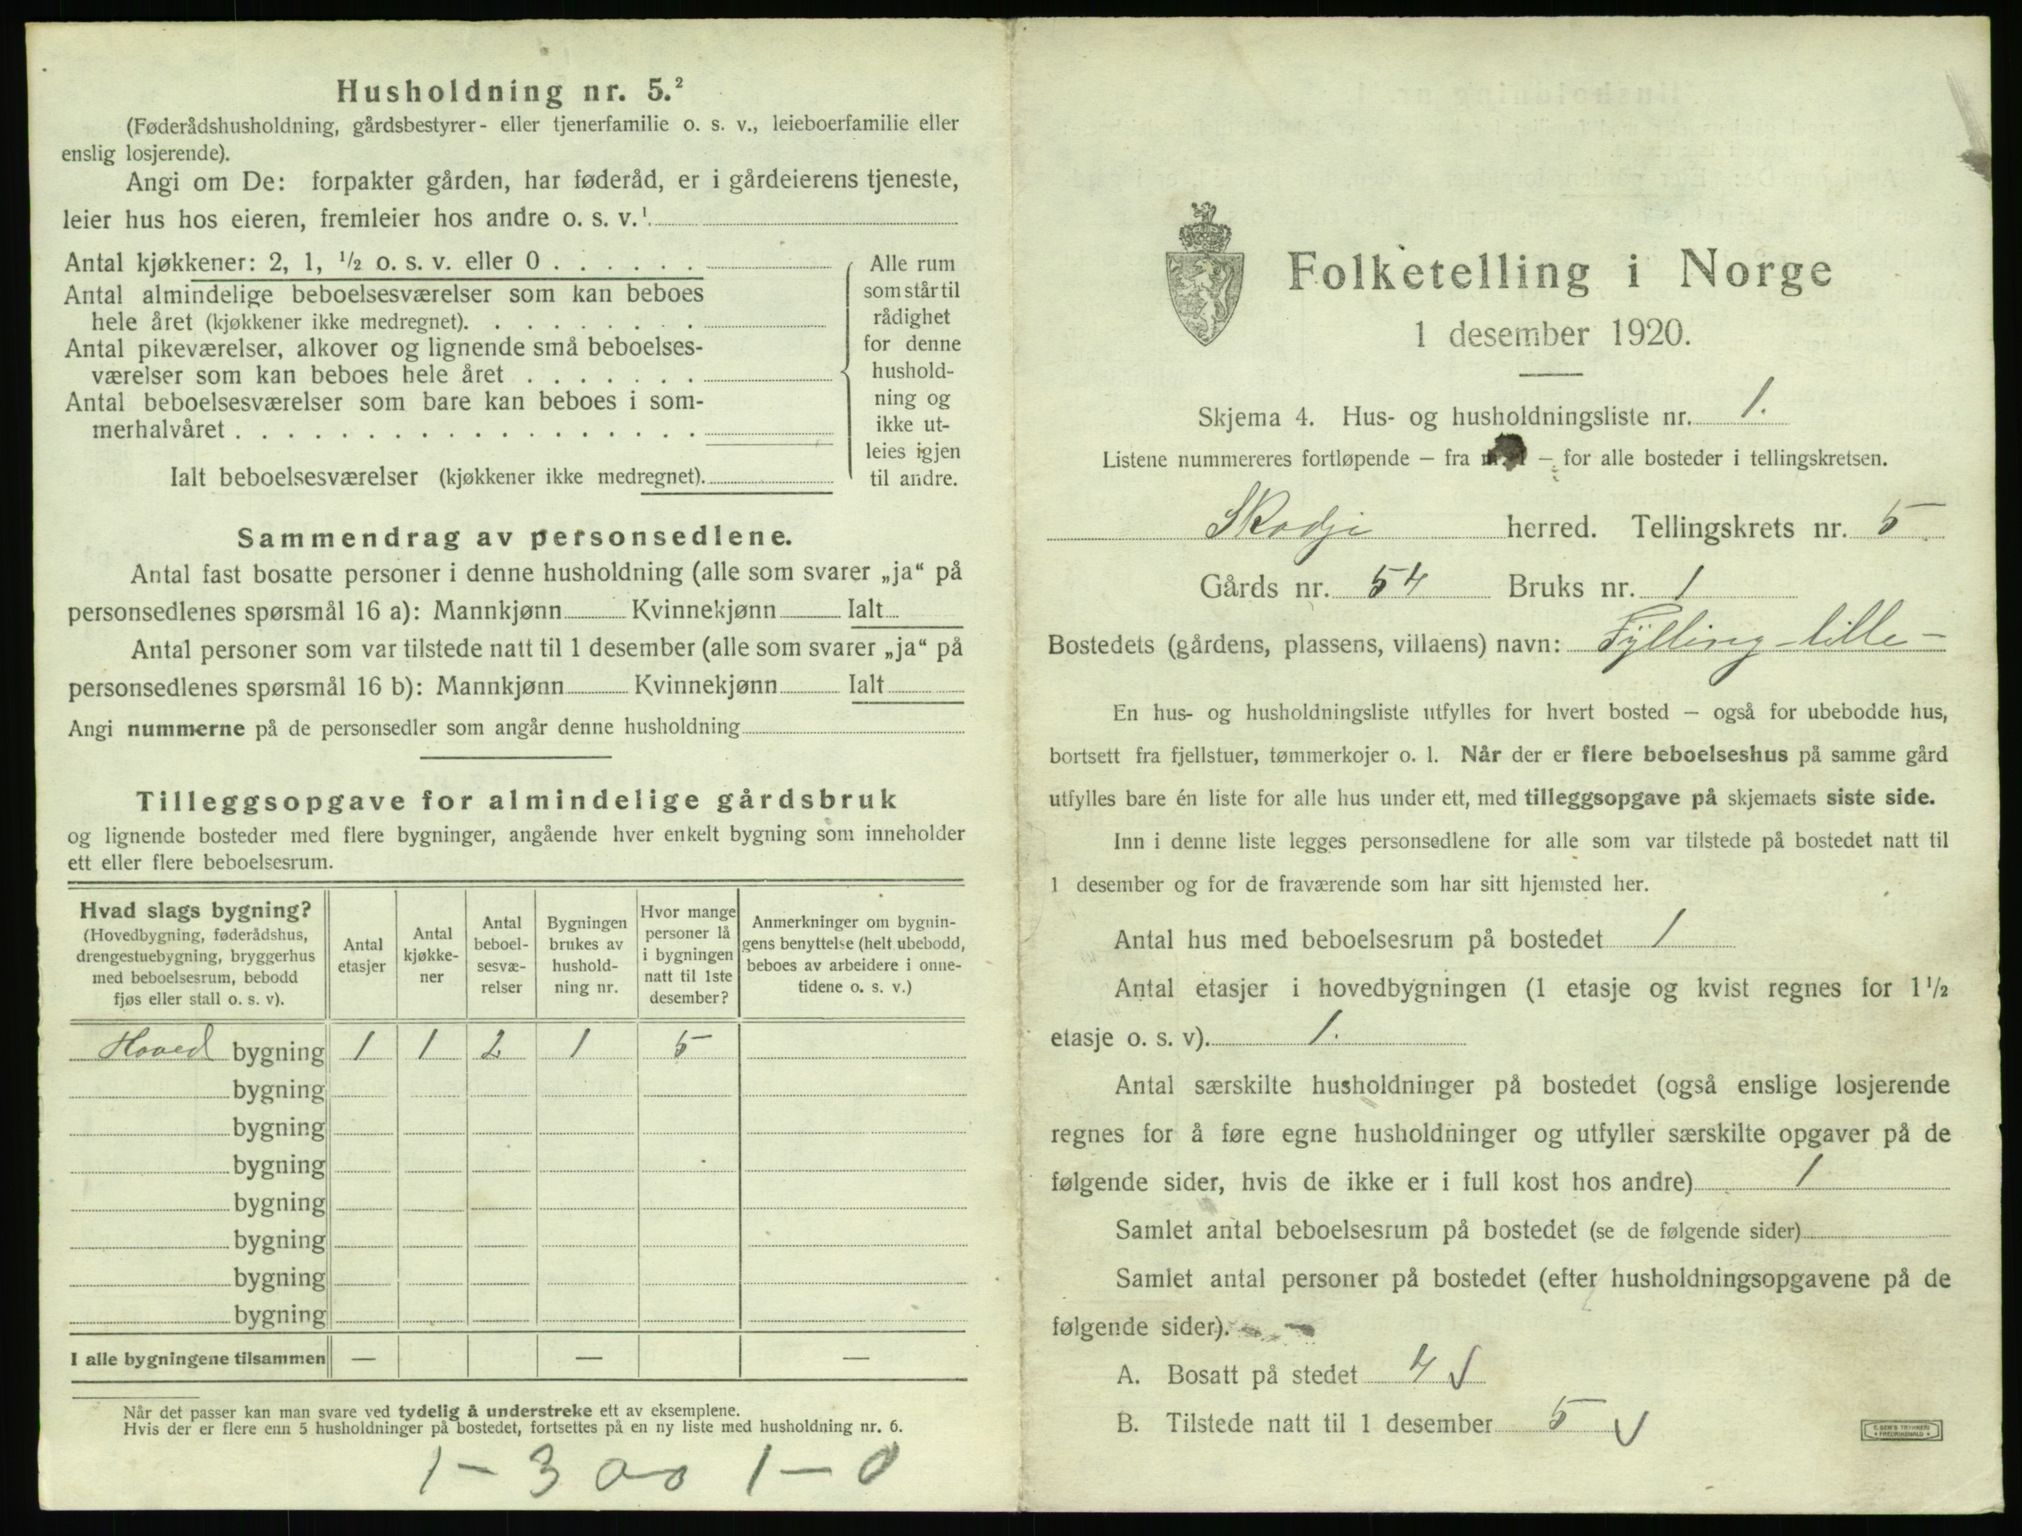 Husholdning nr. 5.²
(Føderådshusholdning, gårdsbestyrer- eller tjenerfamilie o. s. v., leieboerfamilie eller
enslig losjerende).
Angi om De: forpakter gården, har føderåd, er i gårdeierens tjeneste,
leier hus hos eieren, fremleier hos andre o. s. v.¹
Antal kjøkkener: 2, 1, ½ o. s. v. eller 0
Antal almindelige beboelsesværelser som kan beboes
hele året (kjøkkener ikke medregnet).
Antal pikeværelser, alkover og lignende små beboelses-
værelser som kan beboes hele året
Antal beboelsesværelser som bare kan beboes i som-
merhalvåret
Ialt beboelsesværelser (kjøkkener ikke medregnet).
Alle rum
som står til
rådighet
for denne
hushold-
ning og
ikke ut-
leies igjen
til andre.
Sammendrag av personsedlene.
Antal fast bosatte personer i denne husholdning (alle som svarer „ja“ på
personsedlenes spørsmål 16 a): Mannkjønn Kvinnekjønn Ialt
Antal personer som var tilstede natt til 1 desember (alle som svarer „ja“ på
personsedlenes spørsmål 16 b): Mannkjønn Kvinnekjønn Ialt
Angi nummerne på de personsedler som angår denne husholdning
Tilleggsopgave for almindelige gårdsbruk
og lignende bosteder med flere bygninger, angående hver enkelt bygning som inneholder
ett eller flere beboelsesrum.
Hvad slags bygning?
(Hovedbygning, føderådshus,
drengestuebygning, bryggerhus
med beboelsesrum, bebodd
fjøs eller stall o. s. v).
Antal
etasjer
Antal
kjøkke-
ner
Antal
beboel-
sesvæ-
relser
Bygningen
brukes av
hushold-
ning nr.
Hvor mange
personer lå
i bygningen
natt til 1ste
desember?
Anmerkninger om bygnin-
gens benyttelse (helt ubebodd,
beboes av arbeidere i onne-
tidene o. s. v.)
Hoved bygning 1 1 2 1 5
bygning
bygning
bygning
bygning
bygning
bygning
bygning
I alle bygningene tilsammen — — —
Når det passer kan man svare ved tydelig å understreke ett av eksemplene.
Hvis der er flere enn 5 husholdninger på bostedet, fortsettes på en ny liste med husholdning nr. 6.
1 - 3 0 0 1 - 0
Folketelling i Norge
1 desember 1920.
Skjema 4. Hus- og husholdningsliste nr. 1.
Listene nummereres fortløpende — fra — for alle bosteder i tellingskretsen.
Skodje herred. Tellingskrets nr. 5
Gårds nr. 54 Bruks nr. 1
Bostedets (gårdens, plassens, villaens) navn: Fylling-lille-
En hus- og husholdningsliste utfylles for hvert bosted — også for ubebodde hus,
bortsett fra fjellstuer, tømmerkojer o. l. Når der er flere beboelseshus på samme gård
utfylles bare én liste for alle hus under ett, med tilleggsopgave på skjemaets siste side.
Inn i denne liste legges personsedlene for alle som var tilstede på bostedet natt til
1 desember og for de fraværende som har sitt hjemsted her.
Antal hus med beboelsesrum på bostedet 1
Antal etasjer i hovedbygningen (1 etasje og kvist regnes for 1½
etasje o. s. v). 1.
Antal særskilte husholdninger på bostedet (også enslige losjerende
regnes for å føre egne husholdninger og utfyller særskilte opgaver på de
følgende sider, hvis de ikke er i full kost hos andre) 1
Samlet antal beboelsesrum på bostedet (se de følgende sider)
Samlet antal personer på bostedet (efter husholdningsopgavene på de
følgende sider).
A. Bosatt på stedet 4 √
B. Tilstede natt til 1 desember 5 √